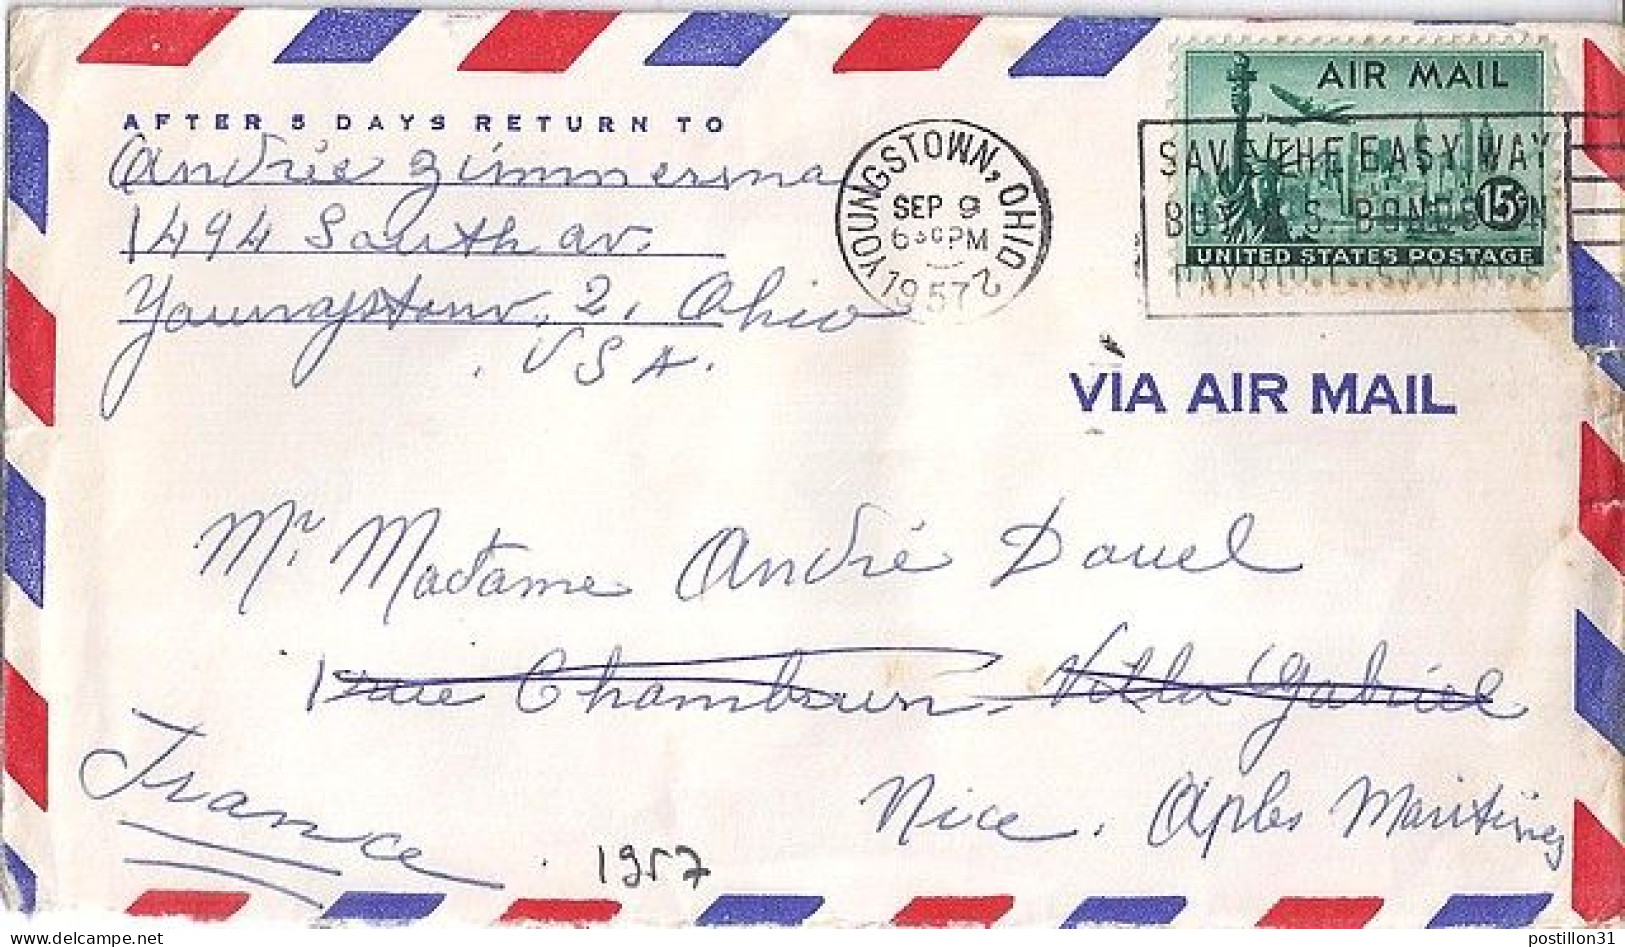 AFTER 5 DAYS RETURN TO
Andrée Zimmerma
1494 South av.
Youngstown, 2, Ohio
. USA.
YOUNGSTOWN, OHIO 2
SEP 9
6 30 PM
1957
AIR MAIL
15¢
UNITED STATES POSTAGE
SAVE THE EASY WAY
BUY U.S. BONDS ON
PAYROLL SAVINGS
VIA AIR MAIL
Mr Madame André Douel
1 rue Chambrun, Villa Gabriel
Nice. Aples Maritimes
France
1957
postillon31